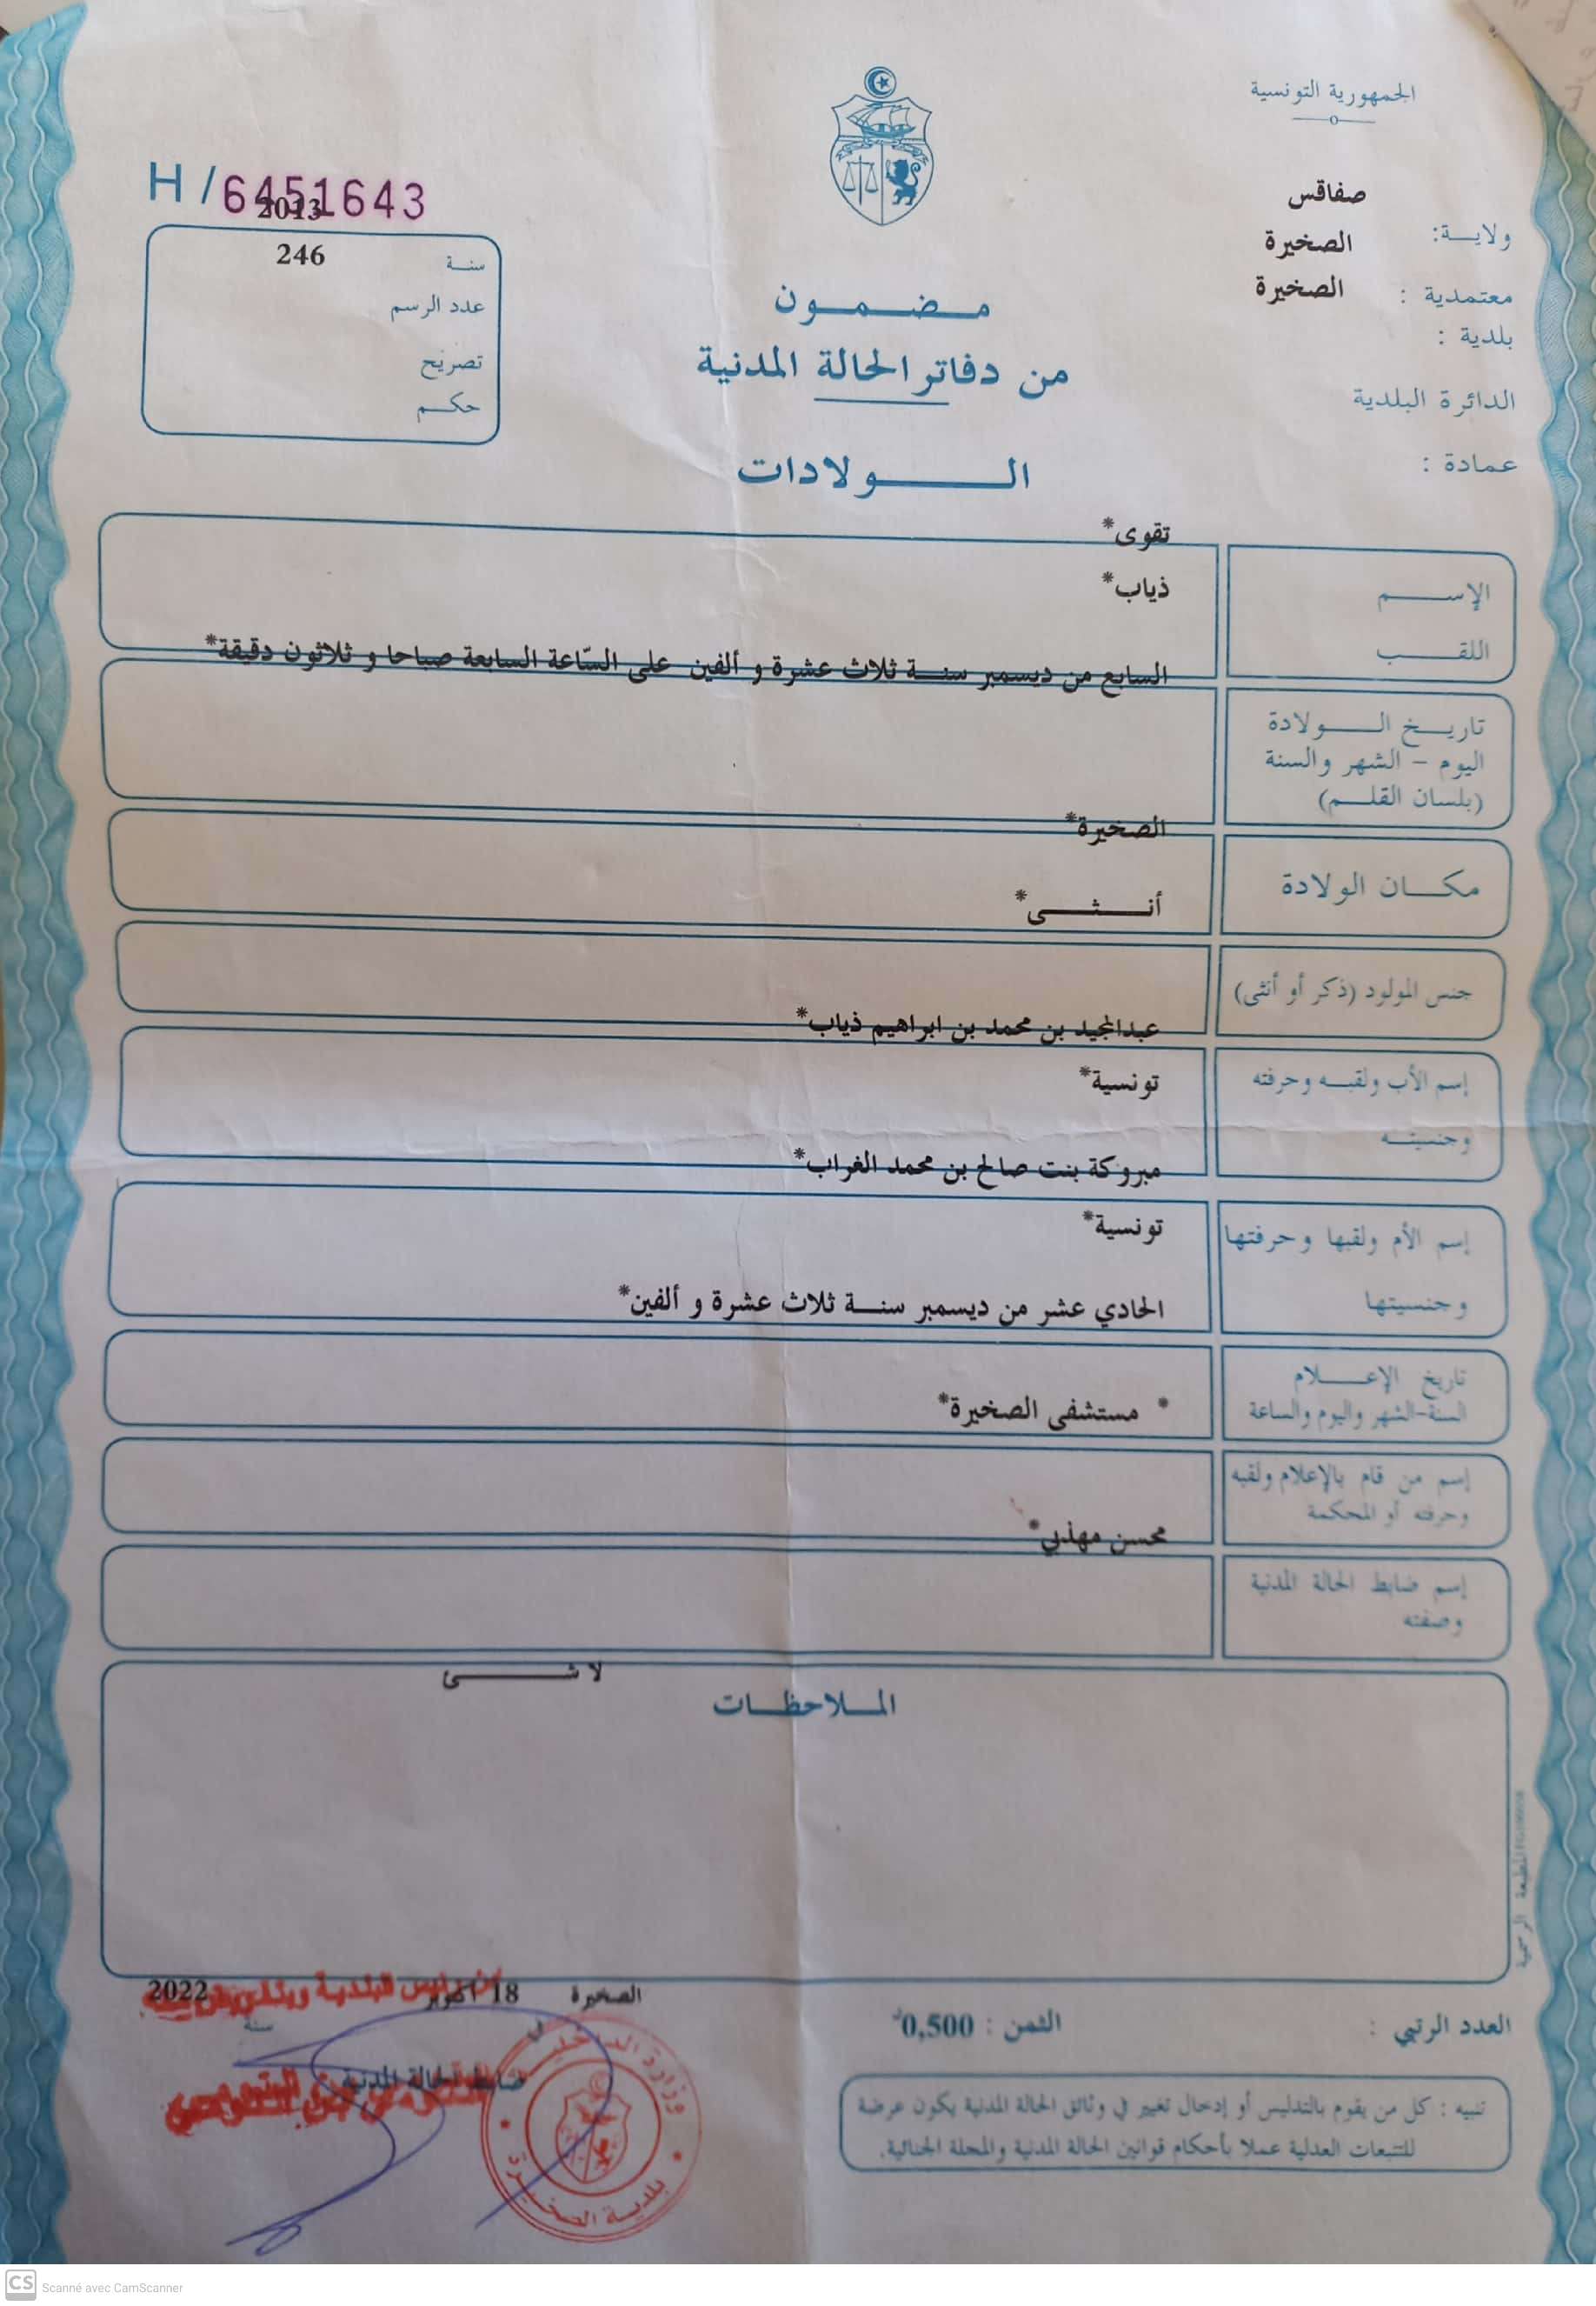 الجمهورية التونسية
H/6451643
2013
صفاقس
ولايـــة:
الصخيرة
معتمدية :
الصخيرة
بلدية :
الدائرة البلدية
عمادة :
246
سنــة
عدد الرسم
تصريح
حكــم
مــضــمــون
من دفاتر الحالة المدنية
الــــولادات
تقوى*
الإســـم
ذياب*
اللقــــب
السابع من ديسمبر سنــة ثلاث عشرة و ألفين على السّاعة السابعة صباحا و ثلاثون دقيقة*
تاريــخ الـــولادة
اليوم – الشهر والسنة
(بلسان القلـــم)
الصخيرة*
مكــان الولادة
أنـــثـــى*
جنس المولود (ذكر أو أنثى)
عبدالمجيد بن محمد بن ابراهيم ذياب*
إسم الأب ولقبــه وحرفته
تونسية*
وجنسيتــه
مبروكة بنت صالح بن محمد الغراب*
إسم الأم ولقبها وحرفتها
تونسية*
وجنسيتها
الحادي عشر من ديسمبر سنــة ثلاث عشرة و ألفين*
تاريخ الإعــــلام
السنة-الشهر واليوم والساعة
* مستشفى الصخيرة*
إسم من قام بالإعلام ولقبه
وحرفته أو المحكمة
محسن مهذبي*
إسم ضابط الحالة المدنية
وصفته
لاشــــئ
المــلاحظــات
المطبعة الرسمية
الصخيرة 18 اكتوبر 2022
في
سنة
ضابط الحالة المدنية
وزارة الداخلية
بلدية الصخيرة
العدد الرتبي :
الثمن : 0,500د
تنبيه : كل من يقوم بالتدليس أو إدخال تغيير في وثائق الحالة المدنية يكون عرضة
للتتبعات العدلية عملا بأحكام قوانين الحالة المدنية والمجلة الجنائية.
CS Scanné avec CamScanner